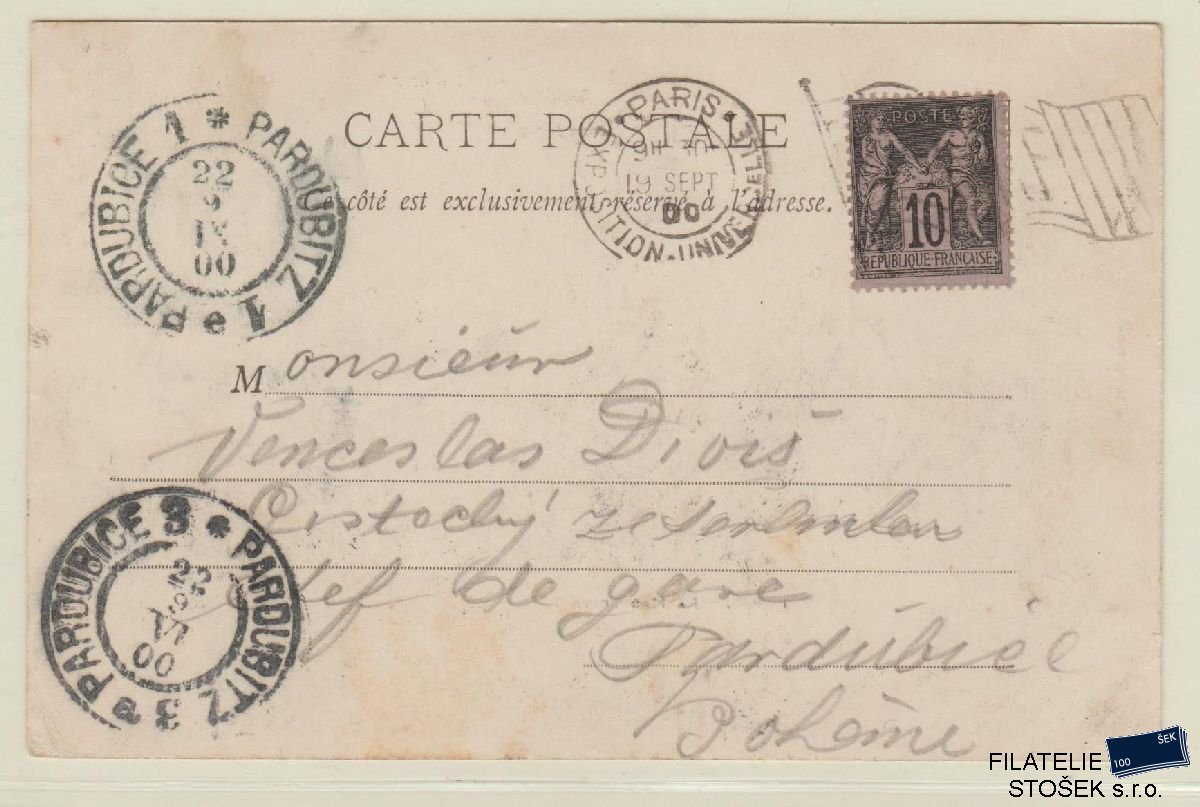 CARTE POSTALE
côté est exclusivement réservé à l'adresse.
PARDUBICE 1 * PARDUBITZ 1 e
22
IX
00
PARIS EXPOSITION UNIVERSELLE
19 SEPT
00
POSTE
10
REPUBLIQUE FRANÇAISE
Monsieur
Venceslas Diviš
de gare
Pardubice
Bohême
PARDUBICE 3 * PARDUBITZ 3
00
FILATELIE
STOŠEK s.r.o.
100
ŠEK